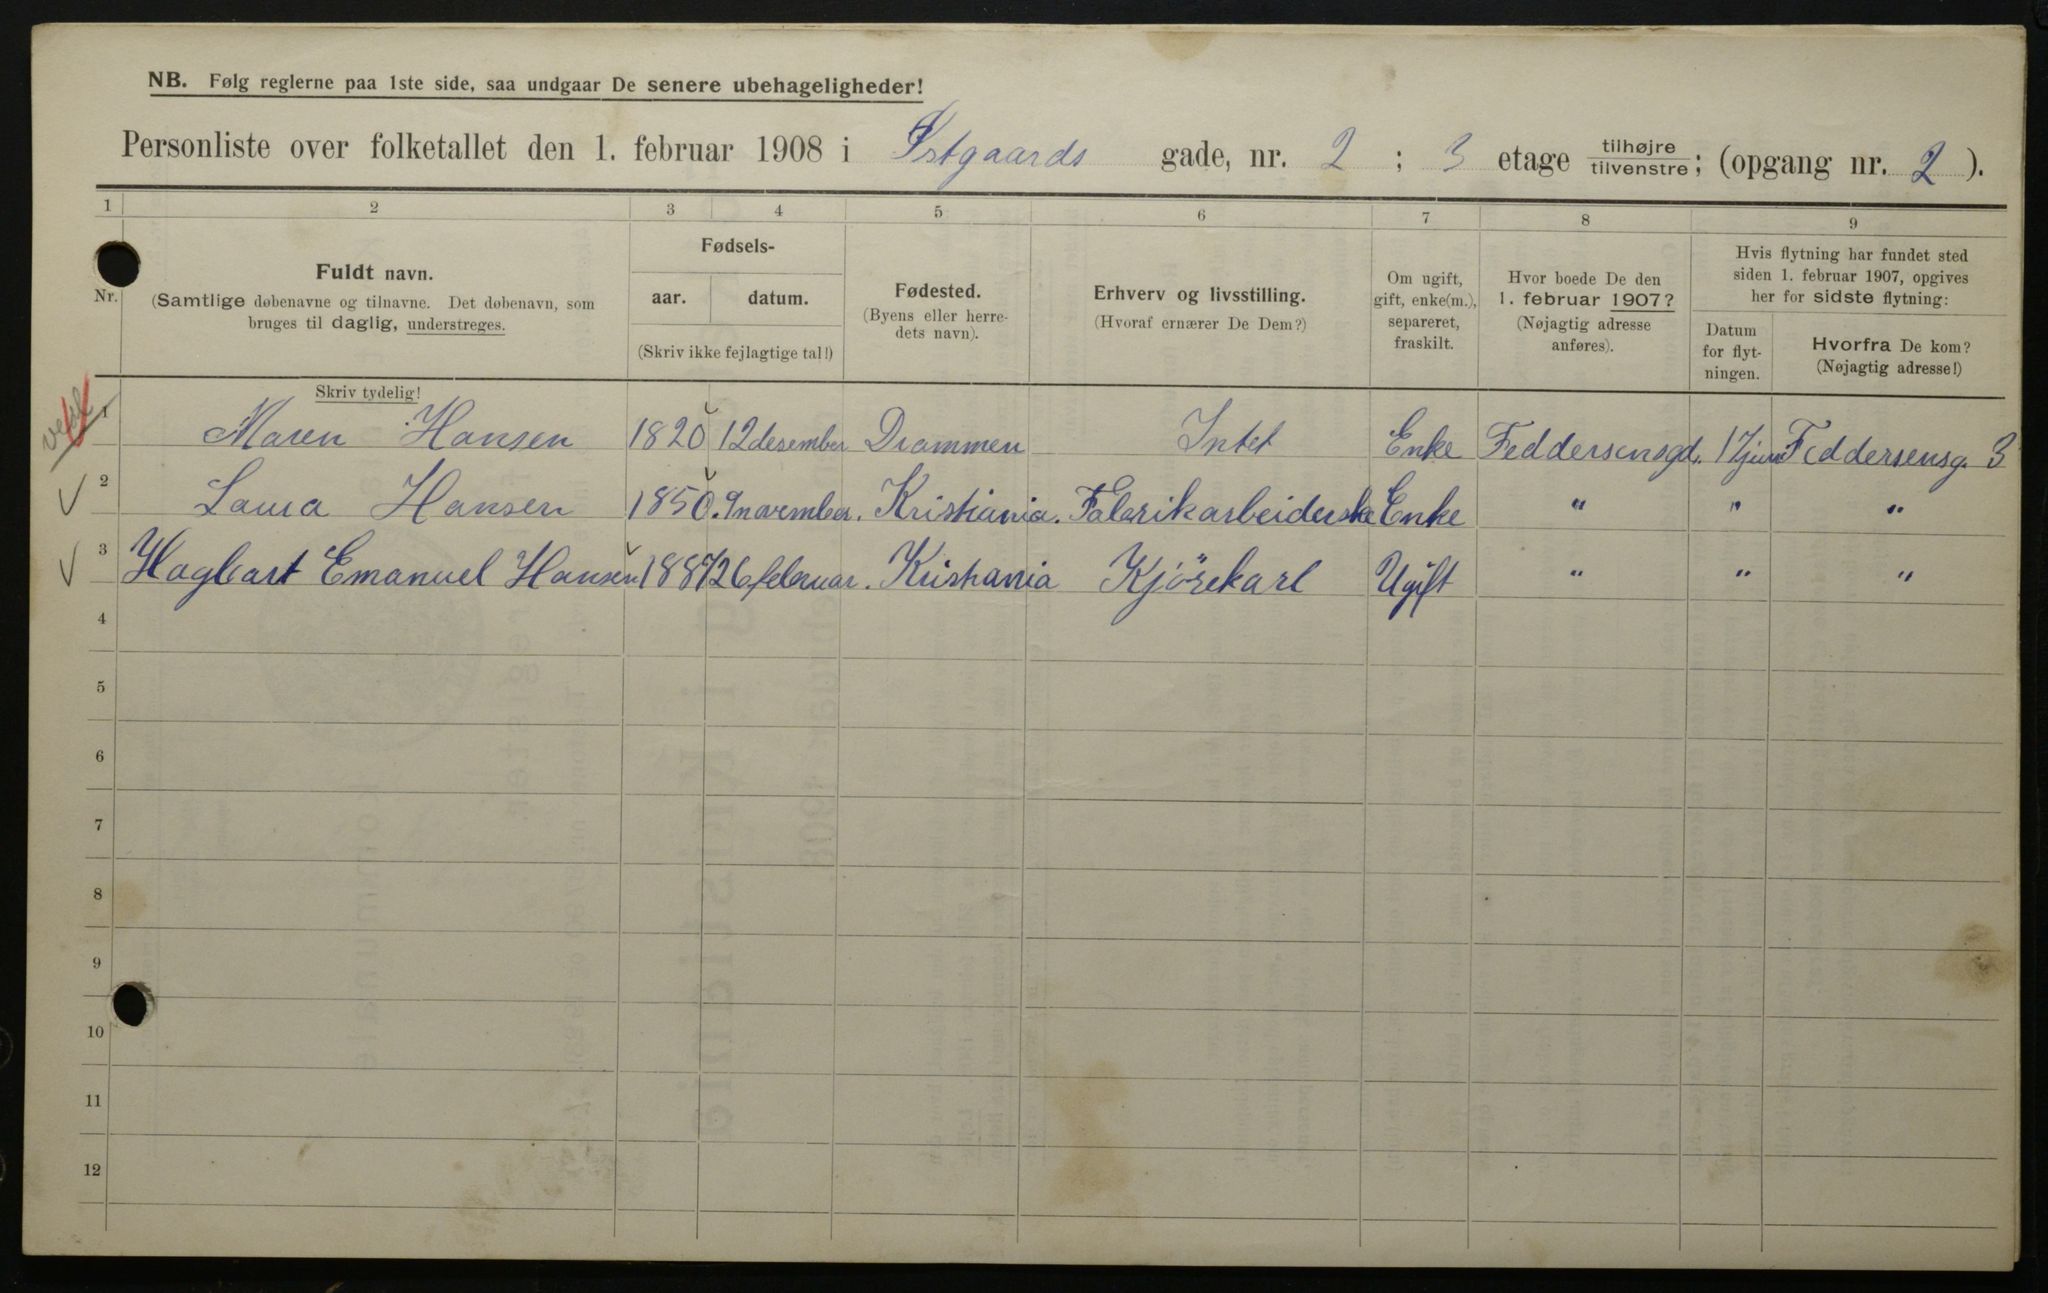 NB. Følg reglerne paa 1ste side, saa undgaar De senere ubehageligheder!
Personliste over folketallet den 1. februar 1908 i Østgaards gade, nr. 2 ; 3 etage tilhøjre/tilvenstre; (opgang nr. 2 ).
1 2 3 4 5 6 7 8 9
Nr.
Fuldt navn.
(Samtlige døbenavne og tilnavne. Det døbenavn, som
bruges til daglig, understreges.
Skriv tydelig!
Fødsels-
aar. datum.
(Skriv ikke fejlagtige tal!)
Fødested.
(Byens eller herre-
dets navn).
Erhverv og livsstilling.
(Hvoraf ernærer De Dem?)
Om ugift,
gift, enke(m.),
separeret,
fraskilt.
Hvor boede De den
1. februar 1907?
(Nøjagtig adresse
anføres).
Hvis flytning har fundet sted
siden 1. februar 1907, opgives
her for sidste flytning:
Datum
for flyt-
ningen.
Hvorfra De kom?
(Nøjagtig adresse!)
1 Maren Hansen 1820 12 desember Drammen Intet Enke Feddersensgd. 1 Juni Feddersensg. 3
2 Laura Hansen 1850. 9 november. Kristiania. Fabrikarbeiderske Enke " " "
3 Hagbart Emanuel Hansen 1887 26 februar. Kristiania Kjörekarl Ugift " " "
4
5
6
7
8
9
10
11
12